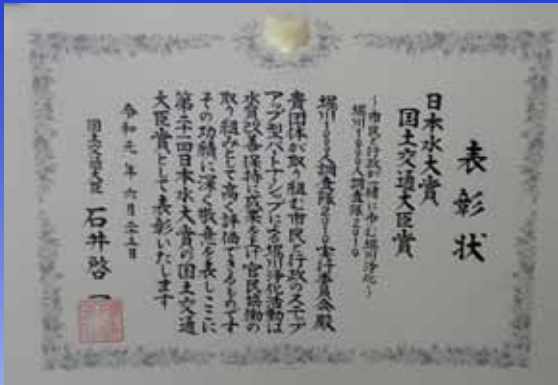 表彰状
日本水大賞
国土交通大臣賞
～市民と行政が一緒に歩む堀川浄化～
堀川1000人調査隊2010
堀川1000人調査隊2010実行委員会殿
貴団体が取り組む市民と行政のステップ
アップ型パートナーシップによる堀川浄化活動は
水質改善保持に成果を上げ官民協働の
取り組みとして高く評価できるものです
その功績に深く敬意を表しここに
第二十一回日本水大賞の国土交通
大臣賞として表彰いたします
令和元年六月二十五日
国土交通大臣 石井啓一